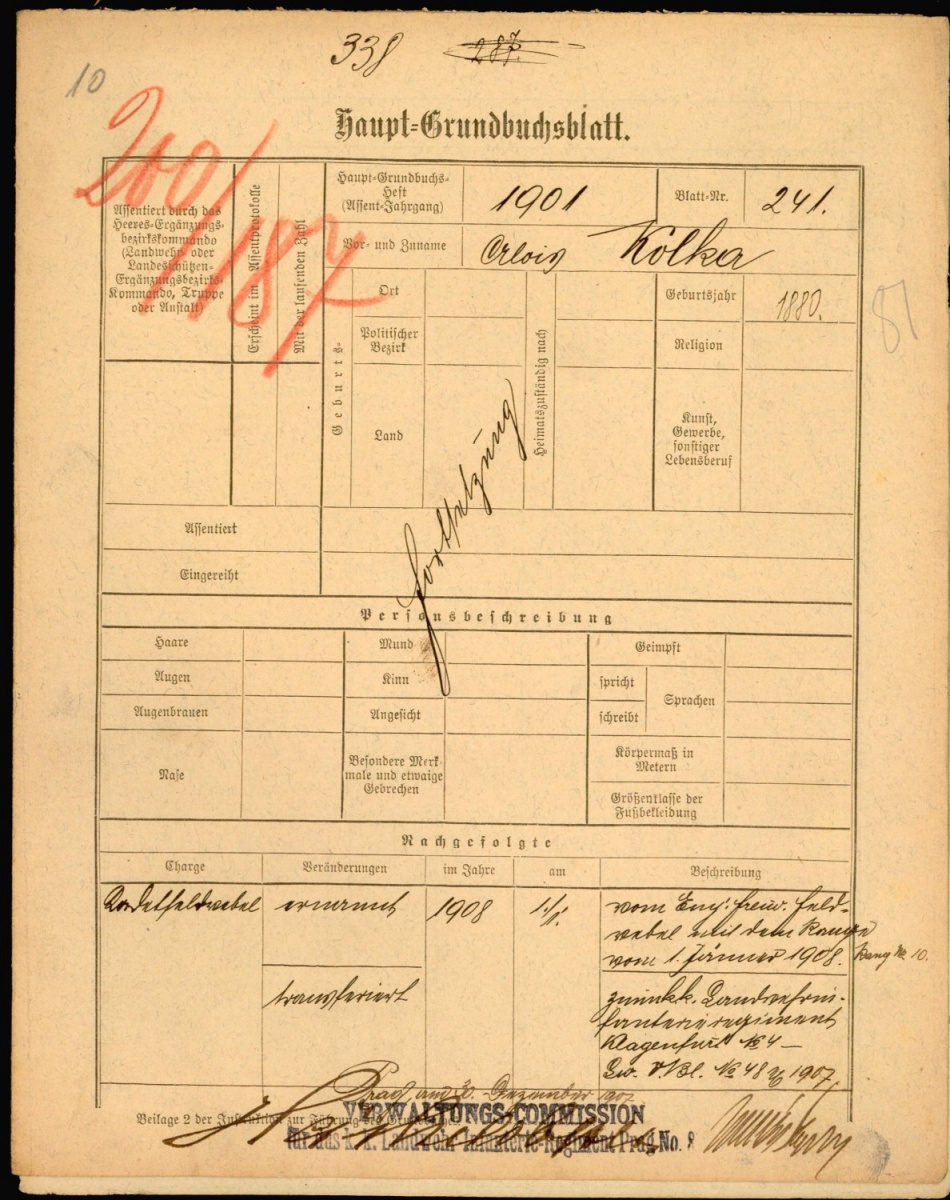 338 287.
10
200/187
Haupt-Grundbuchsblatt.
Assentiert durch das
Heeres-Ergänzungs-
bezirkskommando
(Landwehr oder
Landesschützen-
Ergänzungsbezirks-
Kommando, Truppe
oder Anstalt)
Erscheint im Assentprotokolle
Mit der laufenden Zahl
Haupt-Grundbuchs-
Heft
(Assent-Jahrgang)
1901
Blatt-Nr.
241.
Vor- und Zuname
Alois Kolka
Geburts-
Ort
Politischer
Bezirk
Land
Heimatszuständig nach
Geburtsjahr
1880.
Religion
Kunst,
Gewerbe,
sonstiger
Lebensberuf
87
Fortsetzung
Assentiert
Eingereiht
Personsbeschreibung
Haare
Mund
Geimpft
Augen
Kinn
spricht
schreibt
Sprachen
Augenbrauen
Angesicht
Nase
Besondere Merk-
male und etwaige
Gebrechen
Körpermaß in
Metern
Größenklasse der
Fußbekleidung
Nachgefolgte
Charge Veränderungen im Jahre am Beschreibung
Kadetfeldwebel ernannt 1908 1./1. vom Einj. freiw. Feld-
webel mit dem Range
vom 1. Jänner 1908. Rang No 10.
transferiert zum k.k. Landwehrin-
fanterieregiment
Klagenfurt No 4 —
Lw. VBl. No 48 1907
Prag am 30. Dezember 1907
Beilage 2 der Instruktion zur Führung des Grundbuches
VERWALTUNGS-COMMISSION
für das k.k. Landwehr-Infanterie-Regiment Prag No. 8